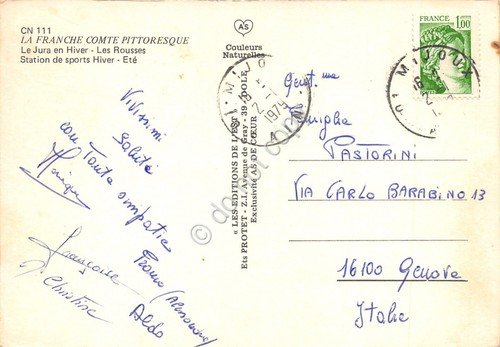 CN 111
LA FRANCHE COMTE PITTORESQUE
Le Jura en Hiver - Les Rousses
Station de sports Hiver - Eté
AS
Couleurs
Naturelles
FRANCE
1,00
MIJOUX
01
MIJOUX
1979
01
A
Vivissimi
saluti
con tanta simpatia
Monique
Françoise
Christine
Aldo
« LES EDITIONS DE L'EST »
Ets PROTET - Z.I. Avenue de Gray - 39 DOLE
Exclusivité AS DE CŒUR
Gent.ma
Famiglia
PASTORINI
VIA CARLO BARABINO 13
16100 Genova
Italie